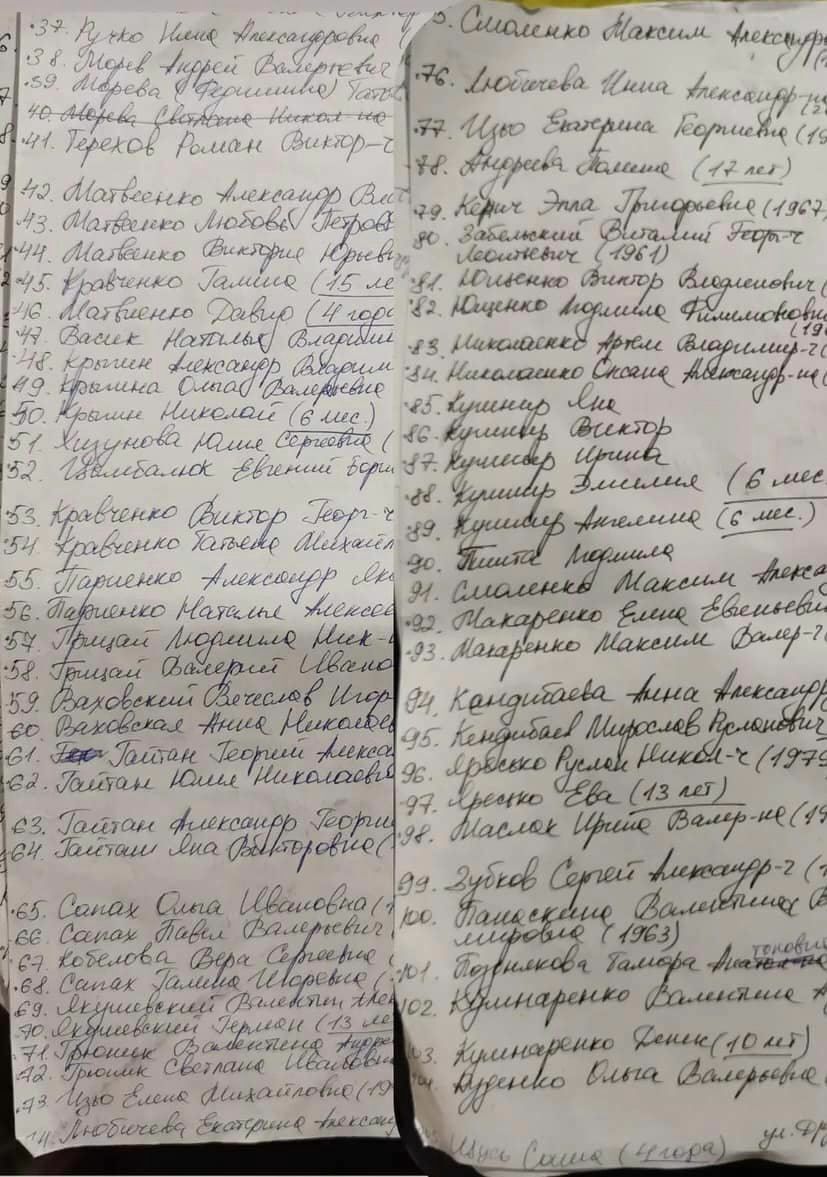 37. Ручко Инна Александровна (
38. Морев Андрей Валерьевич
39. Морева (Федишина) Татья
40. Морева Светлана Никол-на
41. Терехов Роман Виктор-ч
42. Матвеенко Александр
43. Матвеенко Любовь Петров
44. Матвеенко Виктория Юрьевн
45. Кравченко Галина (15 ле
46. Матвиенко Давид (4 года
47. Васик Наталья Владими
48. Крыгин Александр Владим
49. Крыгина Ольга Валерьевна
50. Крыгин Николай (6 мес.)
51. Хизунова Юлия Сергеевна (
52. Цымбалюк Евгений Бори
53. Кравченко Виктор Георг-ч
54. Кравченко Татьяна Михайл
55. Париенко Александр Як
56. Париенко Наталья Алексее
57. Грицай Людмила Ник-
58. Грицай Валерий Ивано
59. Ваховский Вячеслав Игор
60. Ваховская Анна Николаев
61. Гайтан Георгий Алекса
62. Гайтан Юлия Николаевна
63. Гайтан Александр Георгие
64. Гайтан Яна Викторовна (
65. Сапах Ольга Ивановна (1
66. Сапах Павел Валерьевич
67. Кобелова Вера Сергеевна (
68. Сапах Галина Игоревна (
69. Якушевский Валентин Алек
70. Якушевский Герман (13 ле
71. Грюник Валентина Андре
72. Грюник Светлана Ивановн
73. Изю Елена Михайловна (19
74. Любичева Екатерина Александ
5. Смоленко Максим Александр
76. Любичева Инна Александр-на
77. Изю Екатерина Георгиевна (19
78. Андреева Полина (17 лет)
79. Керич Элла Григорьевна (1967
80. Забельский Виталий Георг-ч
Леонтьевич (1961)
81. Ющенко Виктор Владленович (
82. Ющенко Людмила Филимоновн
(19
83. Николаенко Артём Владимир-ч (
84. Николаенко Оксана Александр-на (
85. Кушнир Яна
86. Кушнир Виктор
87. Кушнир Ирина
88. Кушнир Эмилия (6 мес.
89. Кушнир Ангелина (6 мес.)
90. Людмила
91. Смоленко Максим Алекса
92. Макаренко Елена Евгеньевн
93. Макаренко Максим Валер-ч
94. Кандибаева Анна Александр
95. Кендибаев Мирослав Русланович
96. Яресько Руслан Никол-ч (1979
97. Яресько Ева (13 лет)
98. Маслак Ирина Валер-на (19
99. Зубков Сергей Александр-ч (1
100. Панаскина Валентина В
мировна (1963)
101. Позднякова Тамара
102. Кушнаренко Валентина А
103. Кушнаренко Денис (10 лет)
104. Руденко Ольга Валерьевна (
Саша (4 года) ул.